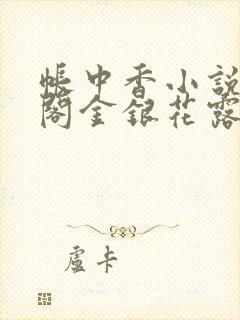 帳中香小說
閣金銀花露
盧卡